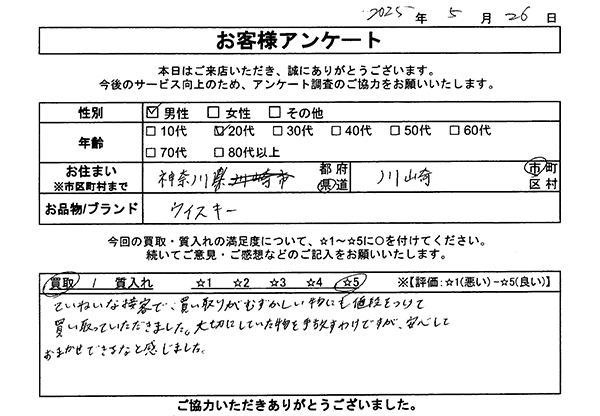 2025 年 5 月 26 日
お客様アンケート
本日はご来店いただき、誠にありがとうございます。
今後のサービス向上のため、アンケート調査のご協力をお願いいたします。
性別 ☑男性 □女性 □その他
年齢 □10代 ☑20代 □30代 □40代 □50代 □60代
□70代 □80代以上
お住まい ※市区町村まで 神奈川県 川崎市 都府県道 川崎 市町区村
お品物/ブランド ウイスキー
今回の買取・質入れの満足度について、☆1～☆5に○を付けてください。
続いてご意見・ご感想などのご記入をお願いいたします。
買取 / 質入れ ☆1 ☆2 ☆3 ☆4 ☆5 ※【評価:☆1(悪い)-☆5(良い)】
ていねいな接客で、買い取りがむずかしい物にも値段をつけて
買い取っていただきました。大切にしていた物を手放すわけですが、安心して
おまかせできるなと感じました。
ご協力いただきありがとうございました。